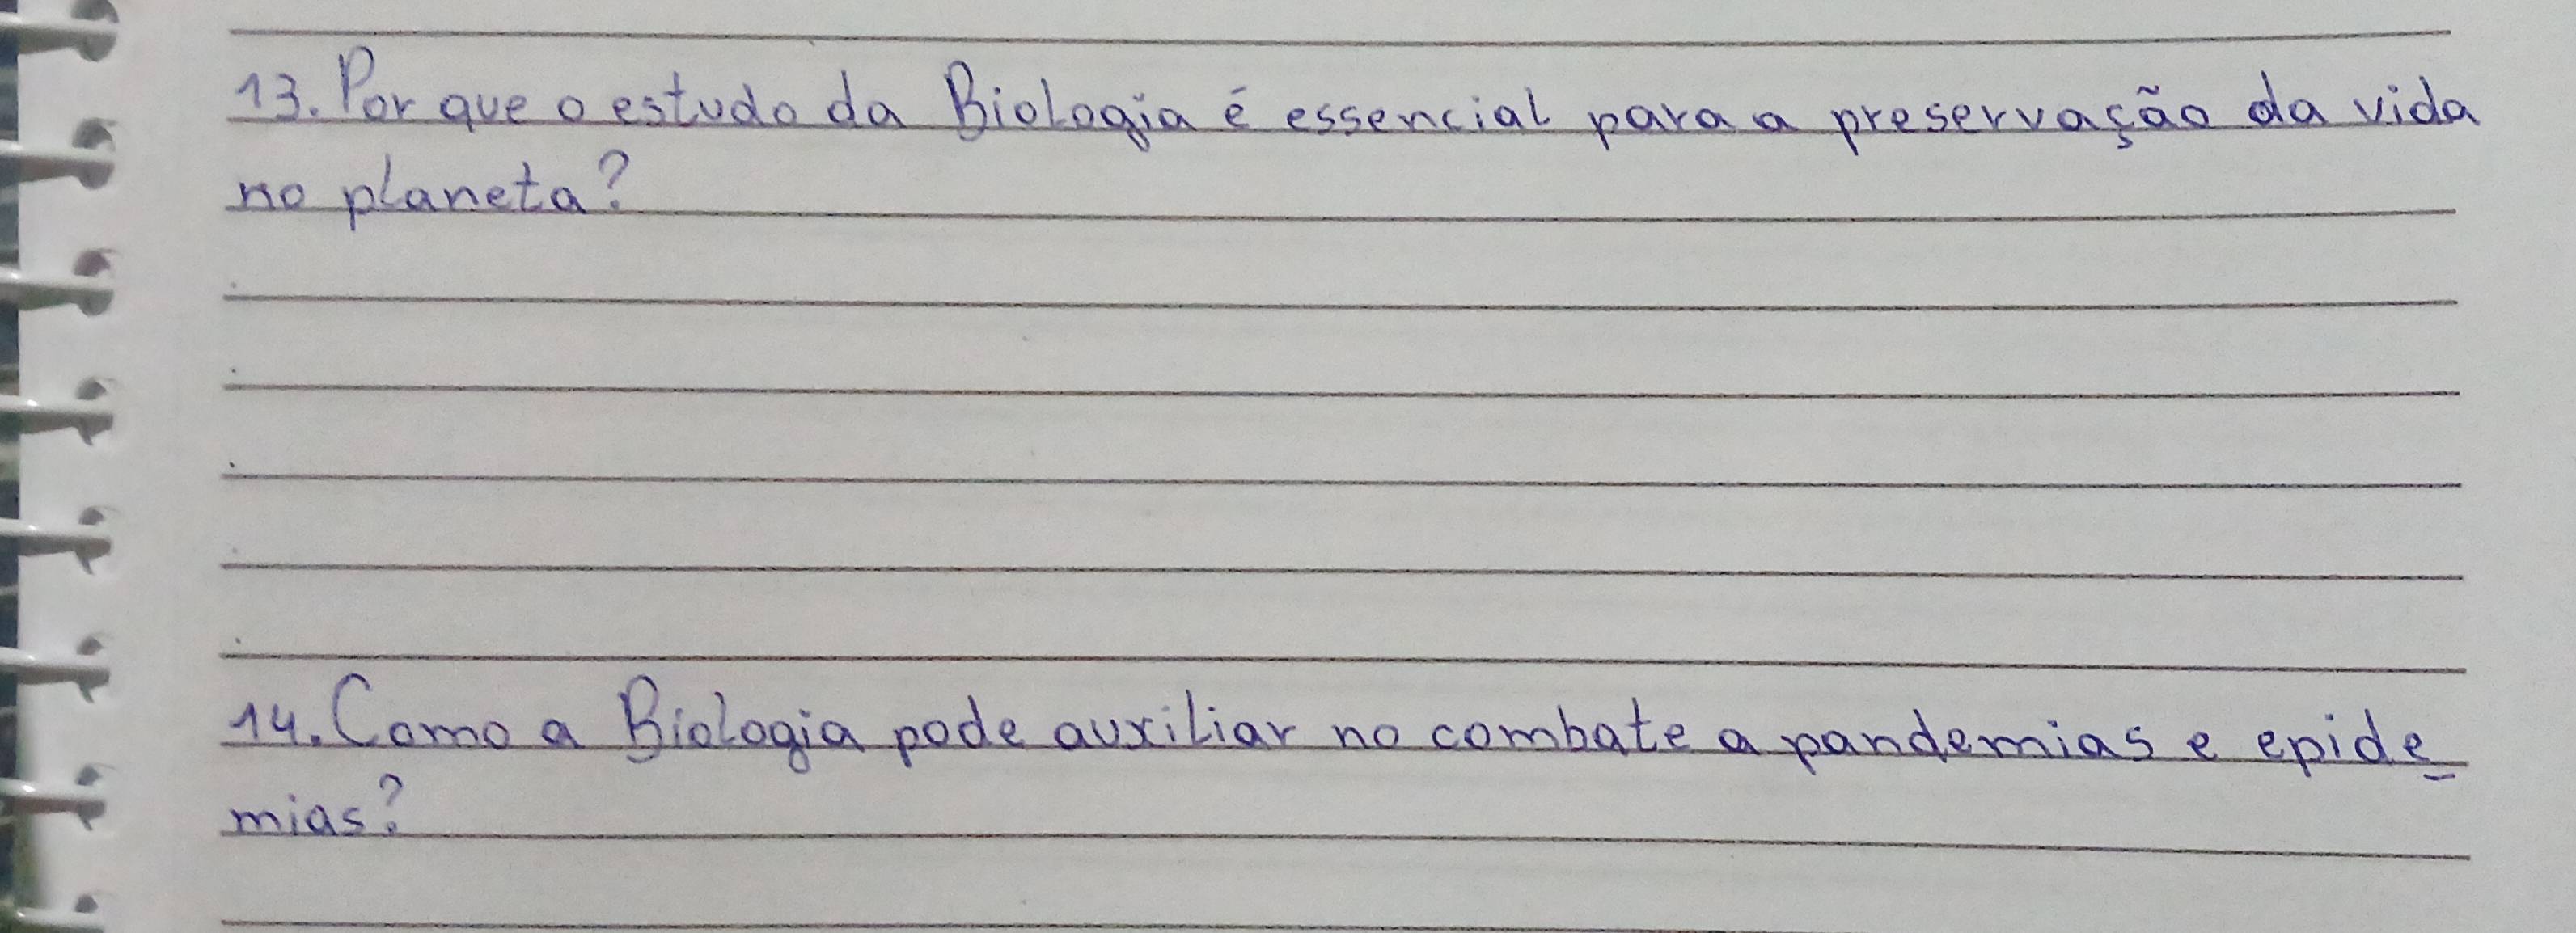 13. Por que o estudo da Biologia é essencial para a preservação da vida
no planeta?
14. Como a Biologia pode auxiliar no combate a pandemias e epide_
mias?